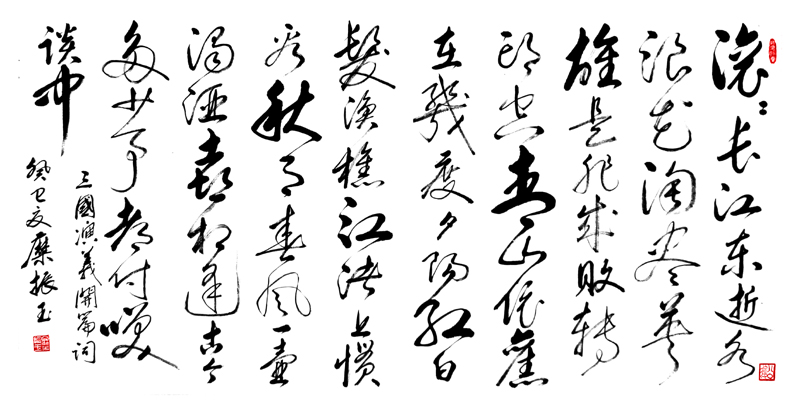 滚滚长江东逝水
浪花淘尽英
雄是非成败转
头空青山依舊
在幾度夕陽红白
髮渔樵江渚上惯
看秋月春风一壶
浊酒喜相逢古今
多少事都付咲
谈中
三國演義開篇词
癸巳夏糜振玉